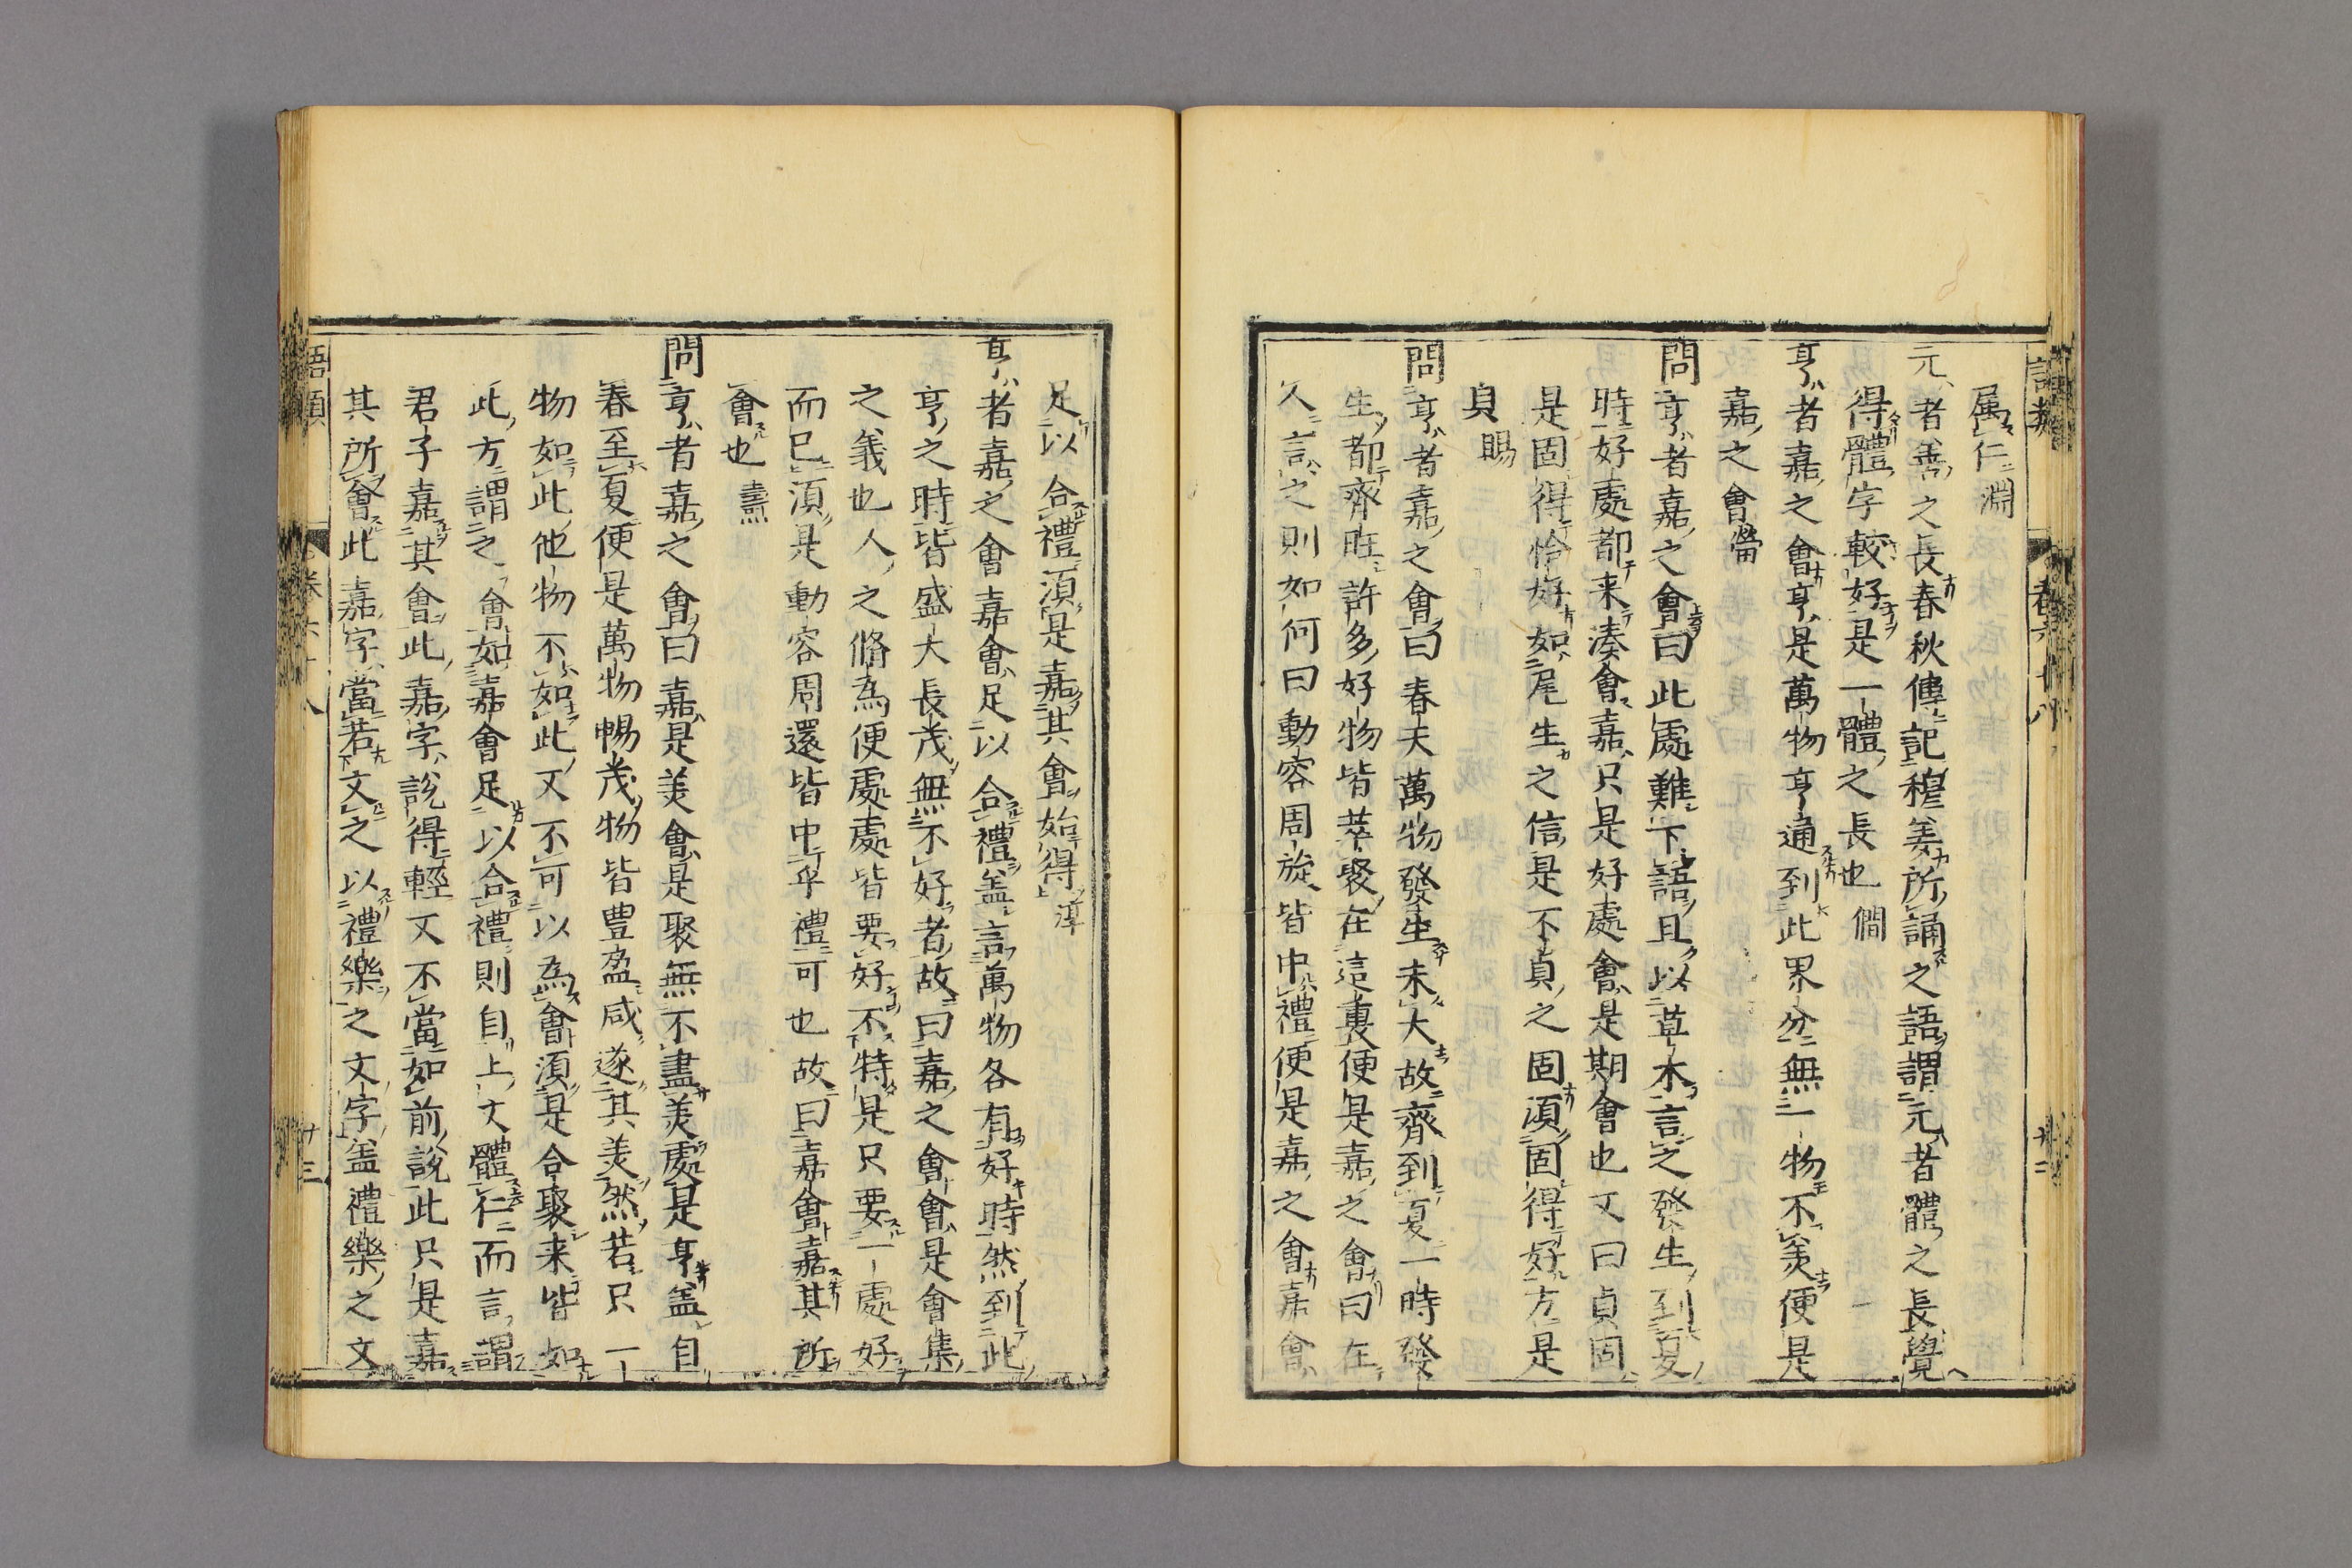 語類 卷六十八 廿二
属仁淵
元者善之長春秋傳記穆姜所誦之語謂元者體之長覺
得體字較好是一體之長也僩
亨者嘉之會亨是萬物亨通到此界分無一物不羙便是
嘉之會㽦
問亨者嘉之會曰此處難下語且以草木言之發生到夏
時好處都来湊會嘉只是好處會是期會也又曰貞固
是固得恰好如尾生之信是不貞之固須固得好方是
貞賜
問亨者嘉之會曰春天萬物發生未大故齊到夏一時發
生都齊旺許多好物皆萃聚在這裏便是嘉之會曰在
人言之則如何曰動容周旋皆中禮便是嘉之會嘉會
足以合禮須是嘉其會始得淳
亨者嘉之會嘉會足以合禮盖言萬物各有好時然到此
亨之時皆盛大長茂無不好者故曰嘉之會會是會集
之義也人之脩為便處處皆要好不特是只要一處好
而已須是動容周還皆中乎禮可也故曰嘉會嘉其所
會也燾
問亨者嘉之會曰嘉是羙會是聚無不盡羙處是亨盖自
春至夏便是萬物暢茂物皆豊盈咸遂其羙然若只一
物如此他物不如此又不可以為會須是合聚来皆如
此方謂之會如嘉會足以合禮則自上文體仁而言謂
君子嘉其會此嘉字說得輕又不當如前說此只是嘉
其所會此嘉字當若文之以禮樂之文字盖禮樂之文
語類 卷六十八 廿三